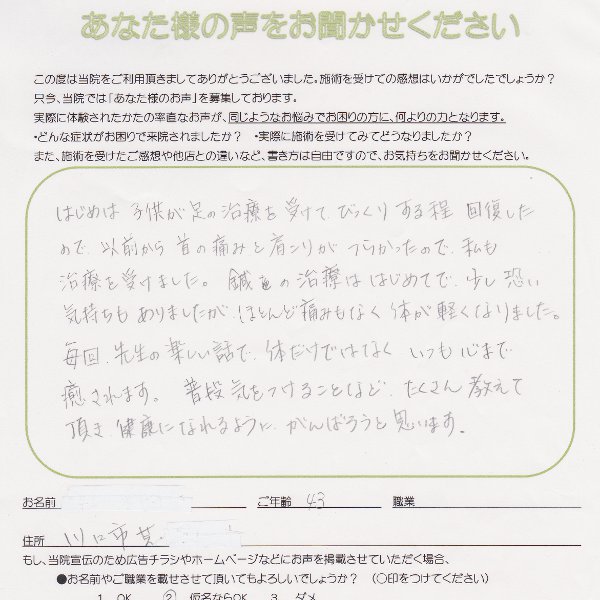 あなた様の声をお聞かせください
この度は当院をご利用頂きましてありがとうございました。施術を受けての感想はいかがでしたでしょうか？
只今、当院では「あなた様のお声」を募集しております。
実際に体験されたかたの率直なお声が、同じようなお悩みでお困りの方に、何よりの力となります。
・どんな症状がお困りで来院されましたか？　・実際に施術を受けてみてどうなりましたか？
また、施術を受けたご感想や他店との違いなど、書き方は自由ですので、お気持ちをお聞かせください。
はじめは 子供が足の治療を受けて、びっくりする程 回復した
ので、以前から 首の痛みと肩こりが つらかったので、私も
治療を受けました。鍼の治療は はじめてで、少し恐い
気持ちもありましたが、ほとんど痛みもなく 体が軽くなりました。
毎回、先生の楽しい話で、体だけではなく いつも心まで
癒されます。 普段気をつけることなど、たくさん教えて
頂き、健康になれるように、がんばろうと思います。
お名前　ご年齢 43　職業
住所 川口市
もし、当院宣伝のため広告チラシやホームページなどにお声を掲載させていただく場合、
●お名前やご職業を載せさせて頂いてもよろしいでしょうか？（○印をつけてください）
1 OK　② 仮名ならOK　3 ダメ